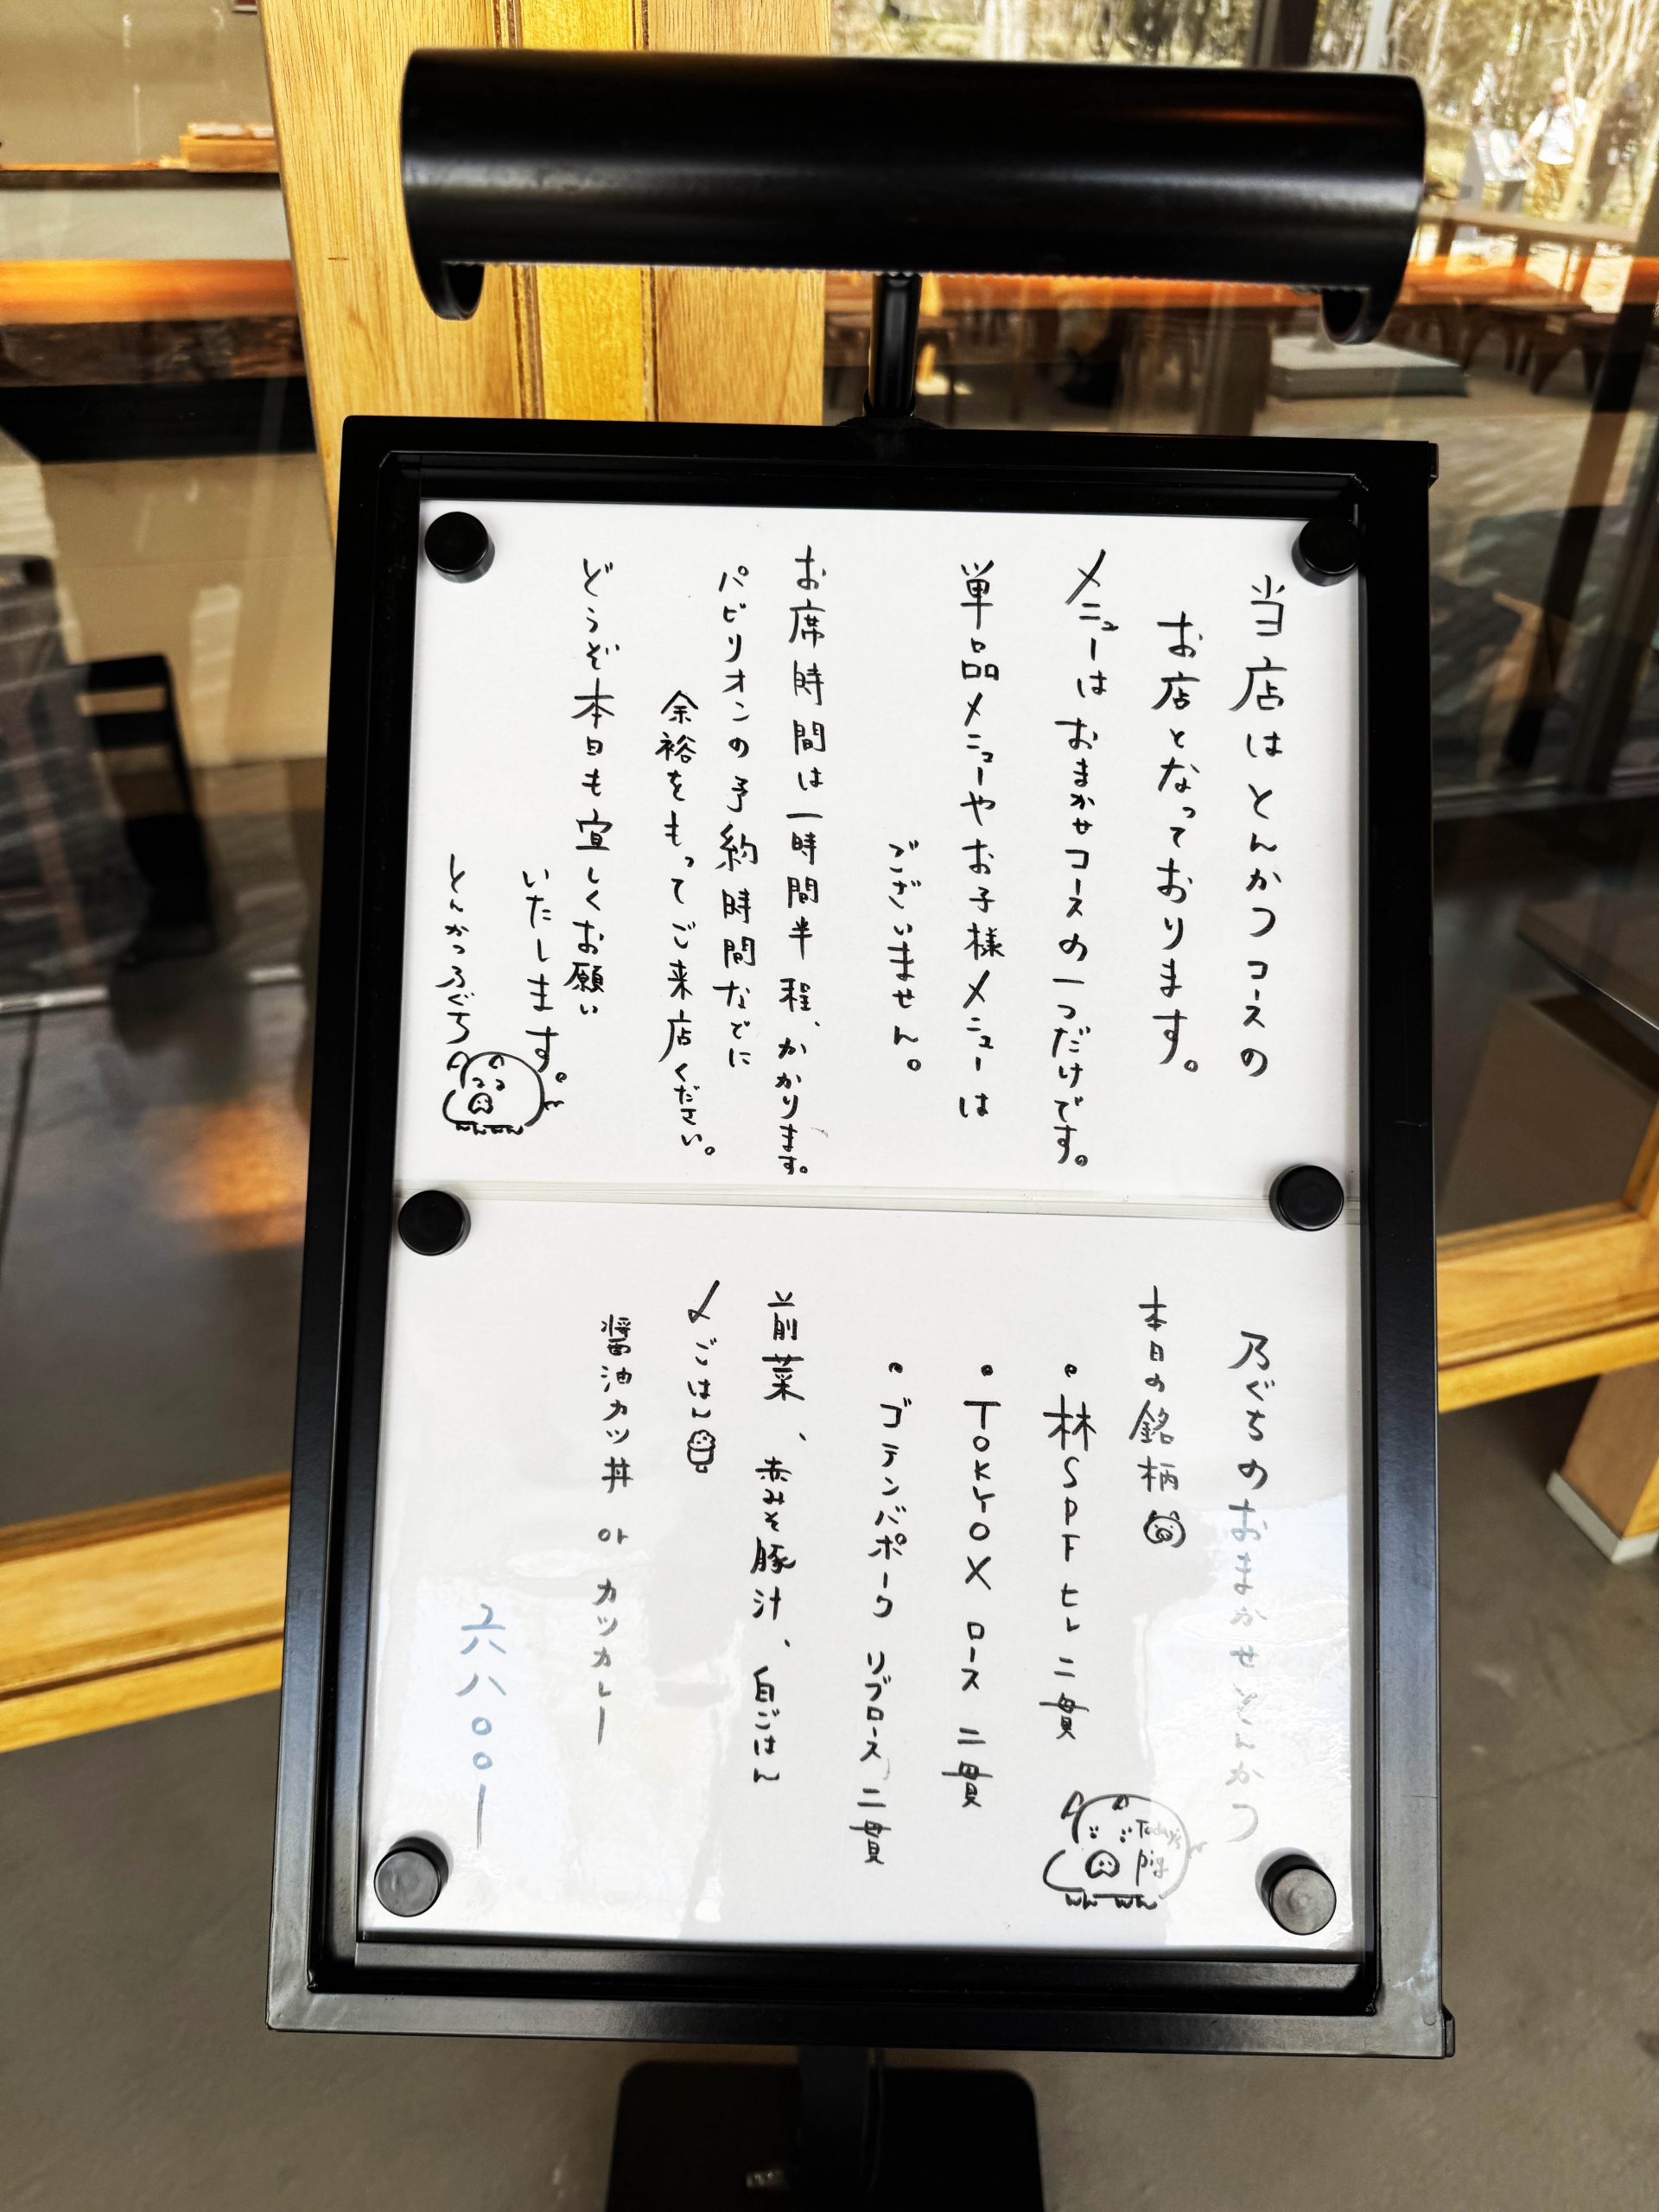 当店はとんかつコースの
お店となっております。
メニューはおまかせコースの一つだけです。
単品メニューやお子様メニューは
ございません。
お席時間は一時間半程、かかります。
パビリオンの予約時間などに
余裕をもってご来店ください。
どうぞ本日も宜しくお願い
いたします。
とんかつ乃ぐち
乃ぐちのおまかせとんかつ
本日の銘柄
• 林SPF ヒレ 二貫
• TOKYO X ロース 二貫
• ゴテンバポーク リブロース 二貫
Today's
pig
前菜、赤みそ豚汁、白ごはん
〆ごはん
醤油カツ丼 or カツカレー
六八〇〇ー